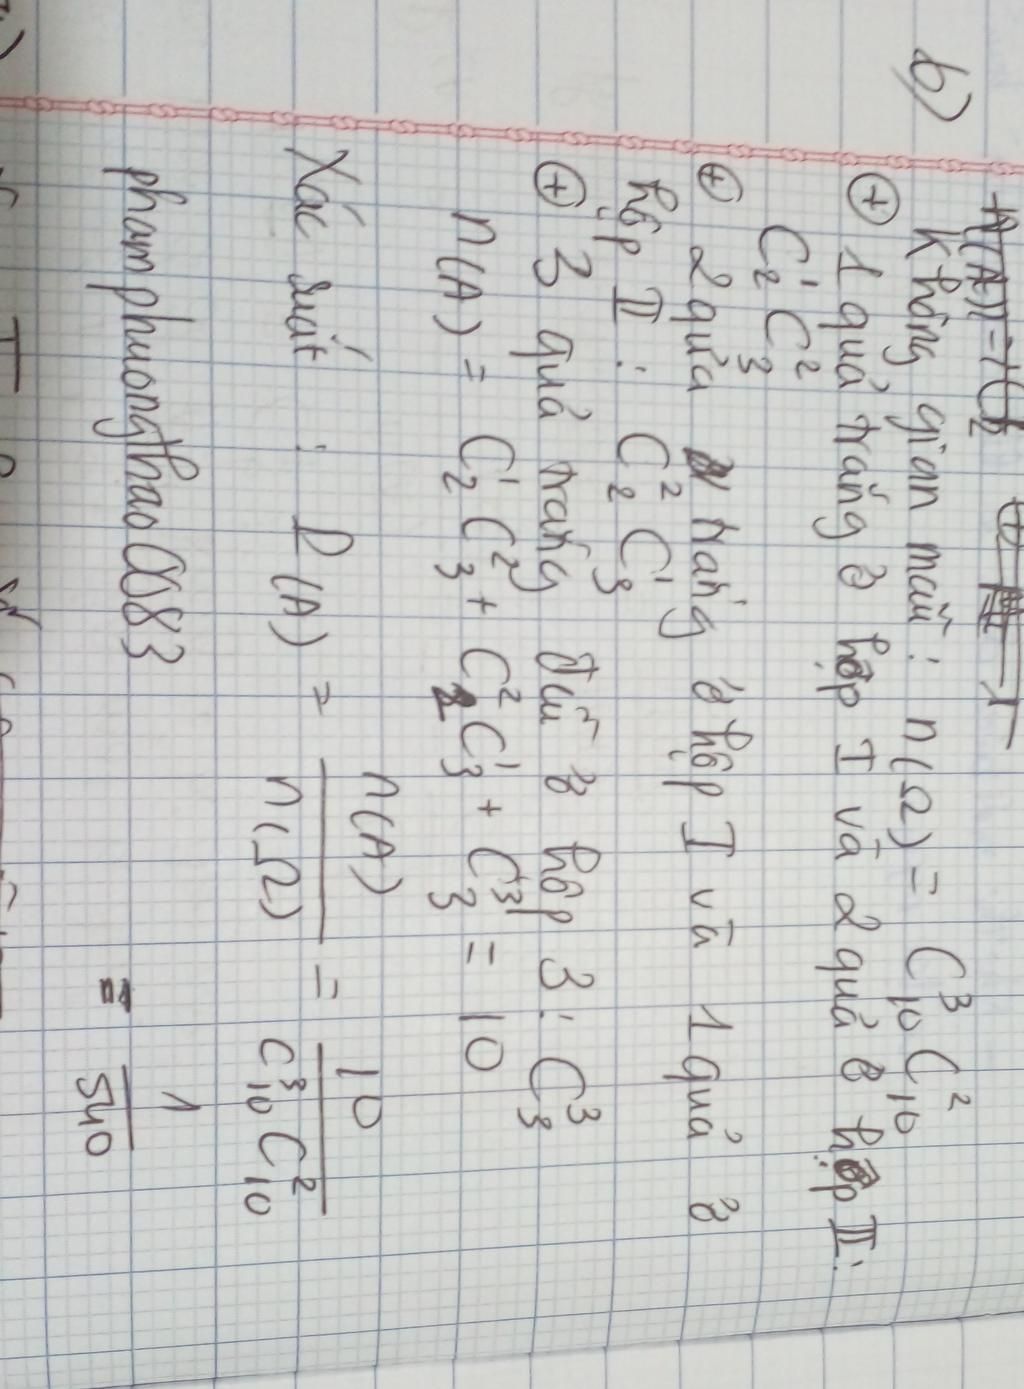 b)
Không gian mẫu: n(Ω) = C³₁₀ C²₁₀
⊕ 1 quả trắng ở hộp I và 2 quả ở hộp II:
C¹₂ C²₃
⊕ 2 quả trắng ở hộp I và 1 quả ở
hộp II: C²₂ C¹₃
⊕ 3 quả trắng đều ở hộp 3: C³₃
n(A) = C¹₂ C²₃ + C²₂ C¹₃ + C³₃ = 10
Xác suất: P(A) = n(A)/n(Ω) = 10/C³₁₀ C²₁₀
= 1/540
phamphuongthao0083